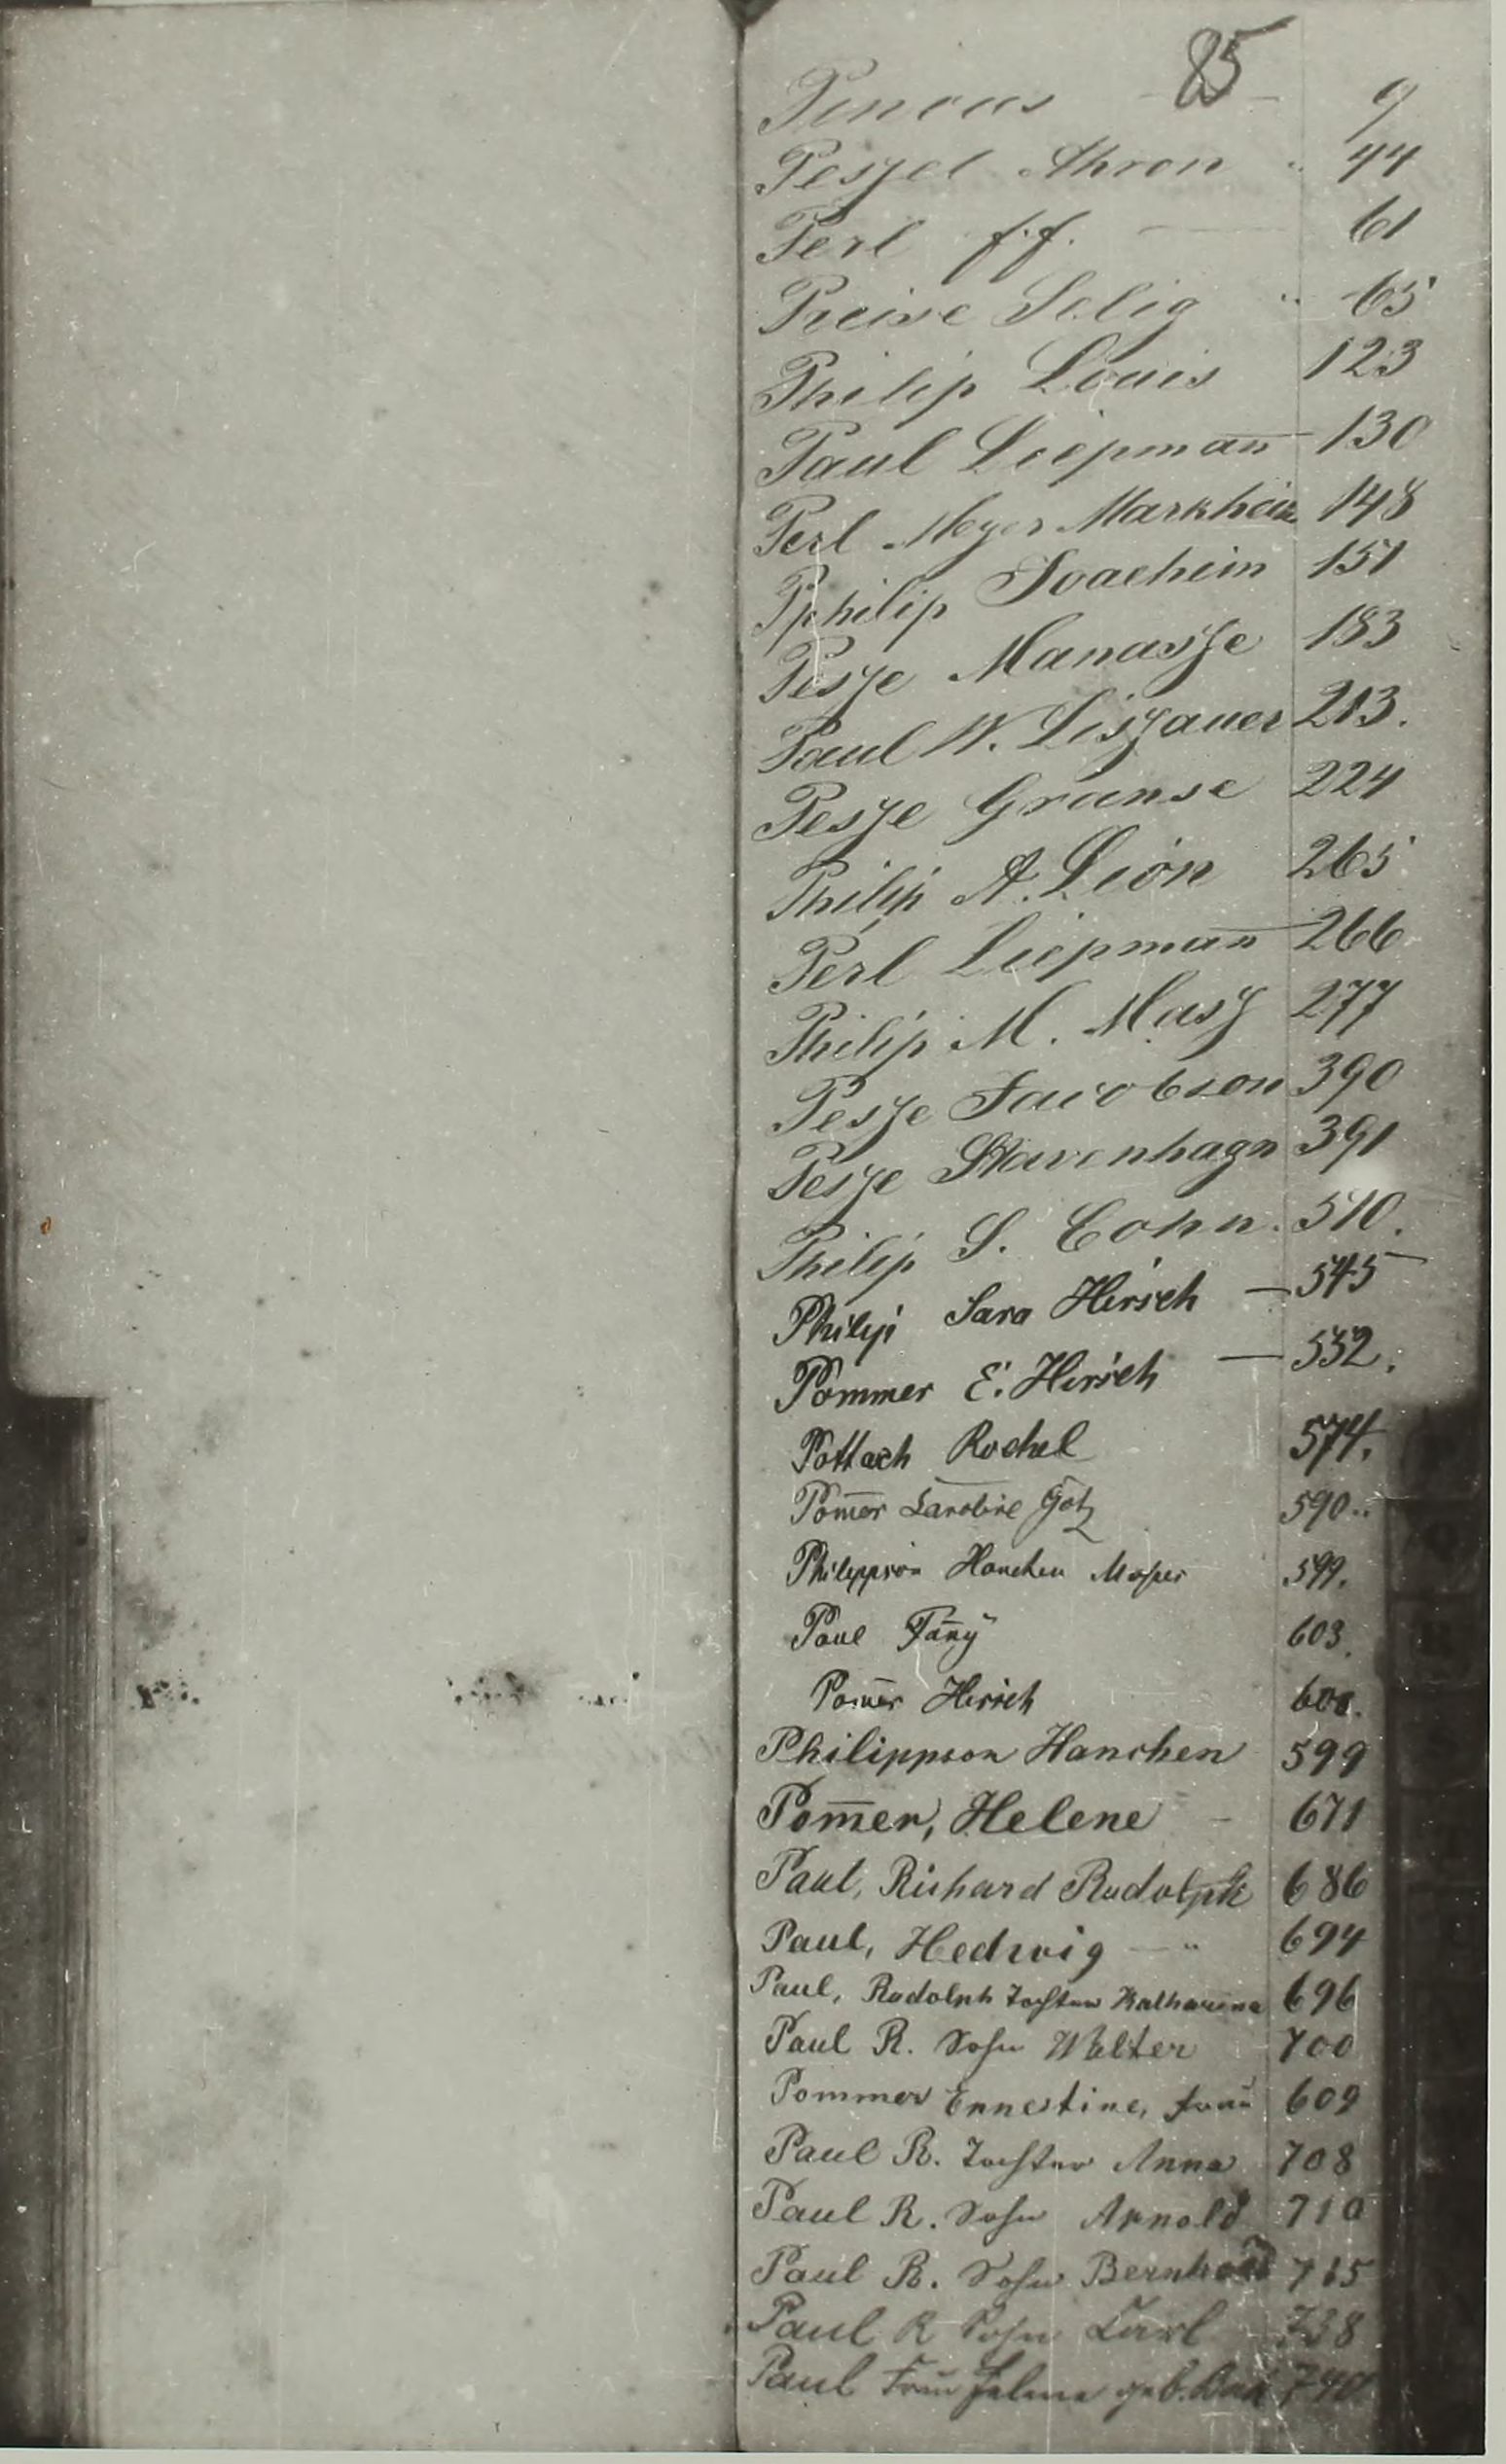 85
Pincus - - 9
Peszel Ahron " 44
Perl J. J. — 61
Preise Selig " 65
Philip Louis 123
Paul Liepman̅ 130
Perl Meyer Markheim 148
Pphilip Joachim 151
Pesze Manasse 183
Paul W. Liszauer 213.
Pesze Granse 224
Philip A. Leon 265
Perl Liepman̅ 266
Philip M. Masz 277
Pesze Jacobson 390
Pesze Stavenhagn 391
Philip S. Cohn. 510.
Philip Sara Hirsch — 545
Pommer E. Hirsch — 552.
Pottasch Rochel 574.
Pom̅er Caroline Götz 590..
Philippson Hanchen Moses 599.
Paul Fan̅y 603.
Pom̅er Hirsch
Philippson Hanchen 599
Pom̅er, Helene - 671
Paul, Richard Rudolph 686
Paul, Hedwig — " 694
Paul, Rudolph Tochter Katharina 696
Paul R. Sohn Walter 700
Pommer Ernestine, Frau 609
Paul R. Tochter Anna 708
Paul R. Sohn Arnold 710
Paul R. Sohn Bernhard 715
Paul R Sohn Carl 738
Paul Frau Selma geb. 740